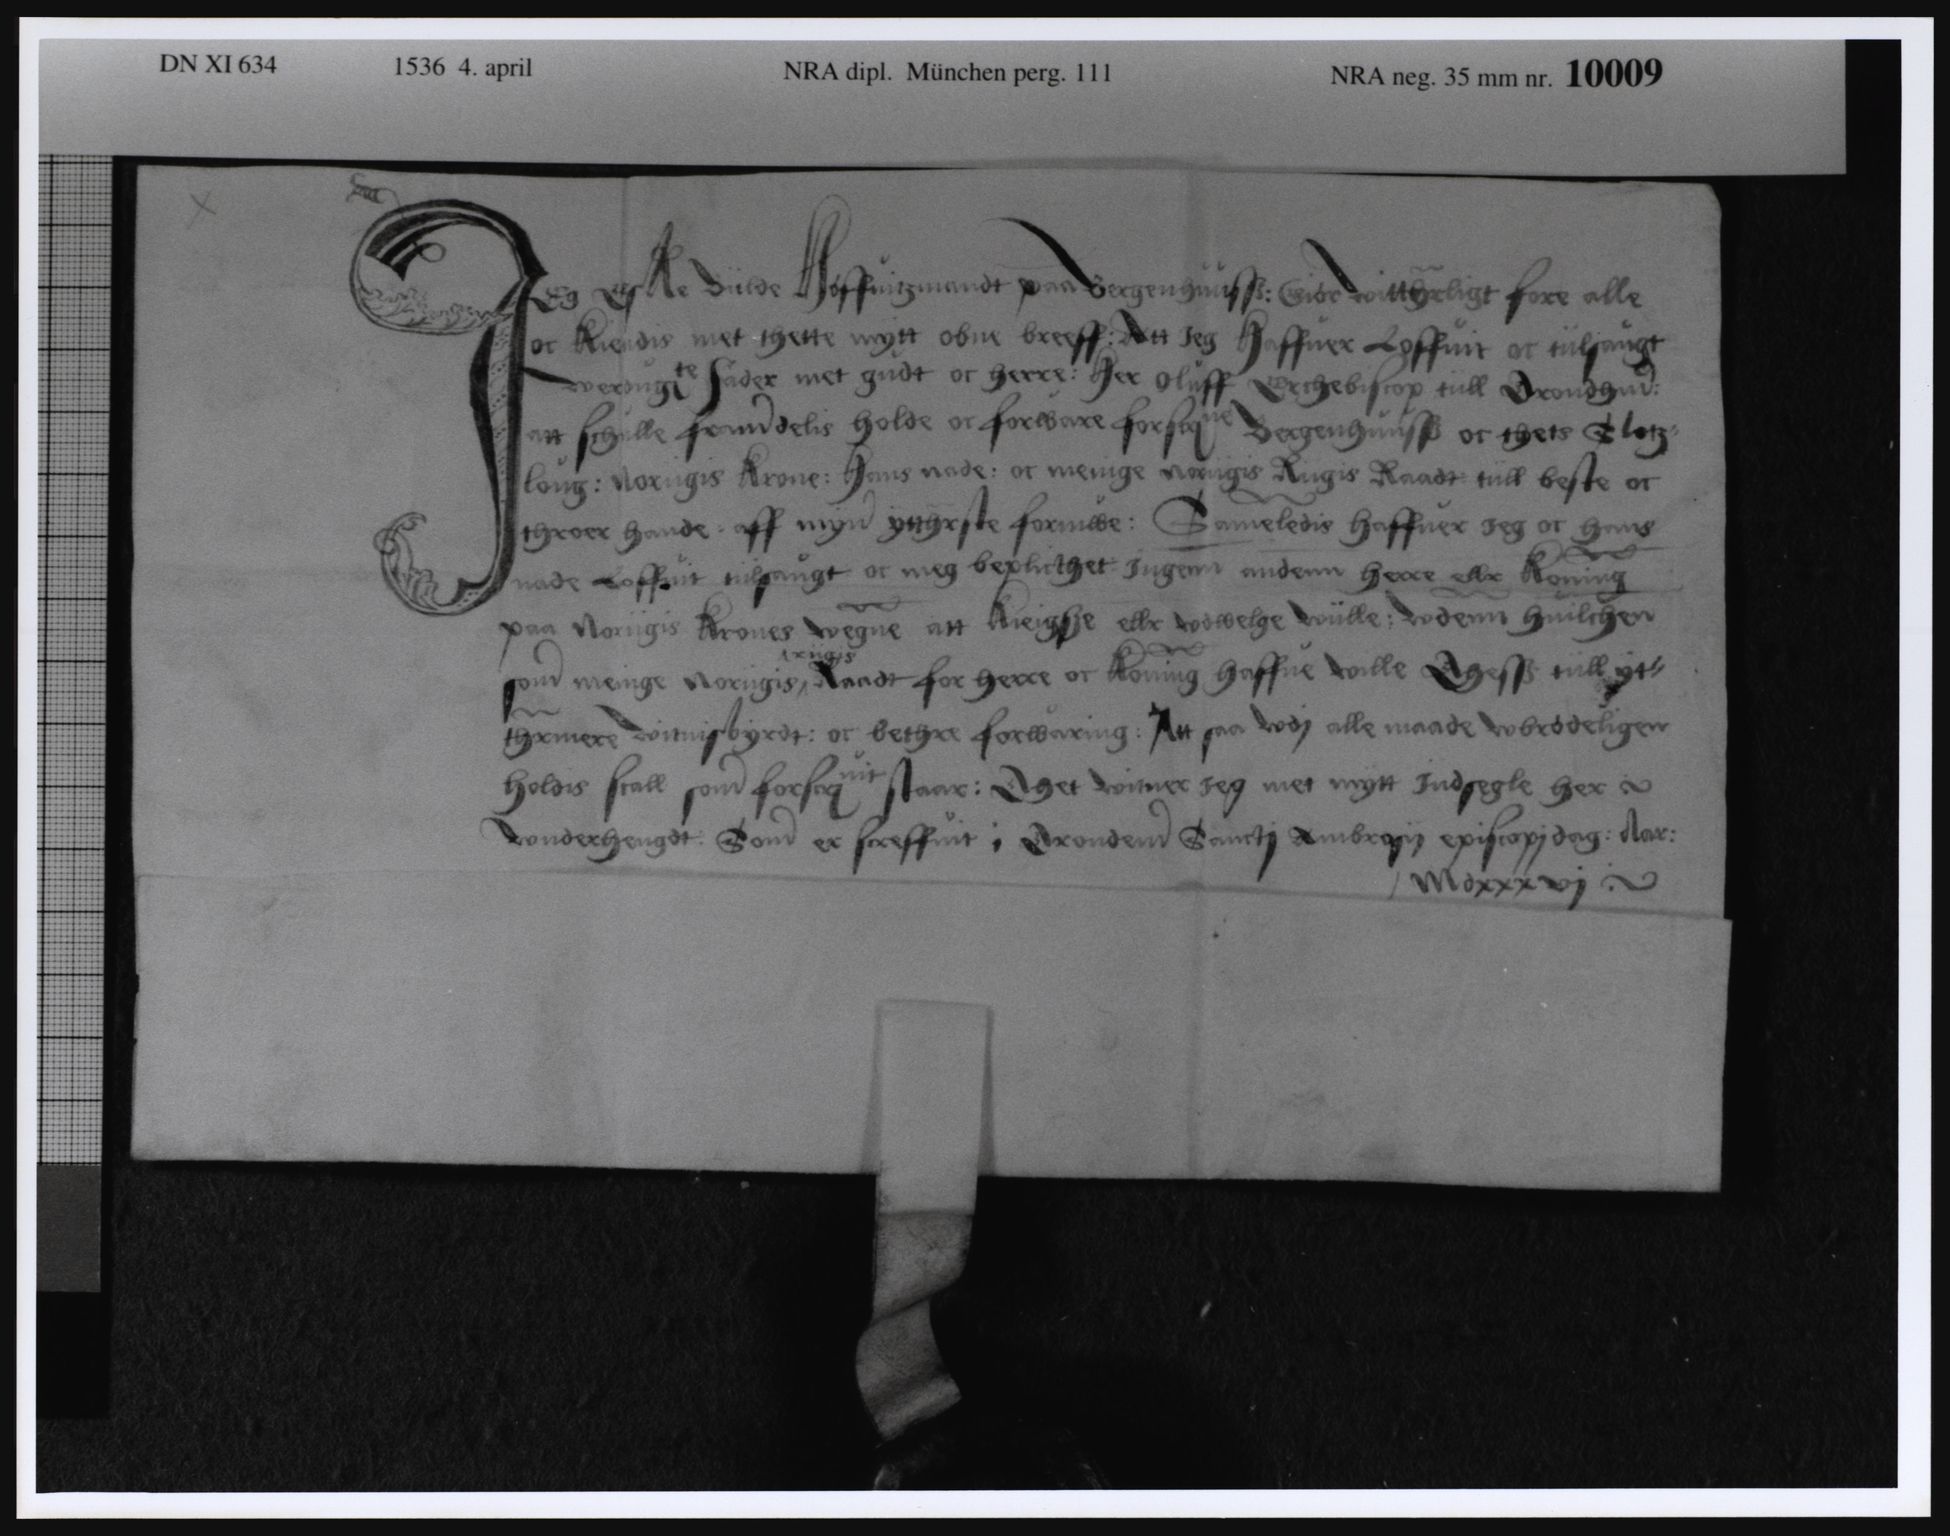 DN XI 634 1536 4. april NRA dipl. München perg. 111 NRA neg. 35 mm nr. 10009
JEg Eske Biilde Høffuitzmandt paa Bergenhuuss: Giør wittherligt fore alle
oc kiendis met thette mytt obne breeff: Att Jeg Haffuer Loffuit oc tilsaugt
werdugte fader met gudt oc herre: Her Oluff Erchebiscop till Trondhm:
att schulle framdelis holde oc forware forscrne Bergenhuuss oc thets Slotz-
loug: Noriigis Krone: Hans nade: oc menige Noriigis Riigis Raadt till beste oc
throer hande aff myn ytthrste formwe: Sameledis Haffuer Jeg oc Hans
nade Loffuit tilsaugt oc meg beplicthet Ingenn andenn herre ellr Koning
paa Noriigis Krones wegne att kieighse ellr wdwelge wiille: wdenn huilchen
som menige Noriigis riigis Raadt for herre oc Koning haffue wille Thess till yt-
thrmere witnisbyrdt: oc bethre forwaring: Att saa wdj alle maade wbrødeligen
holdis scall som forscruit staar: Thet witner Jeg met mytt Indsegle her
wnderhengdt. Som er screffuit i Trondem Sanctj Ambrosij episcopj dag: Aar:
Mdxxxvj